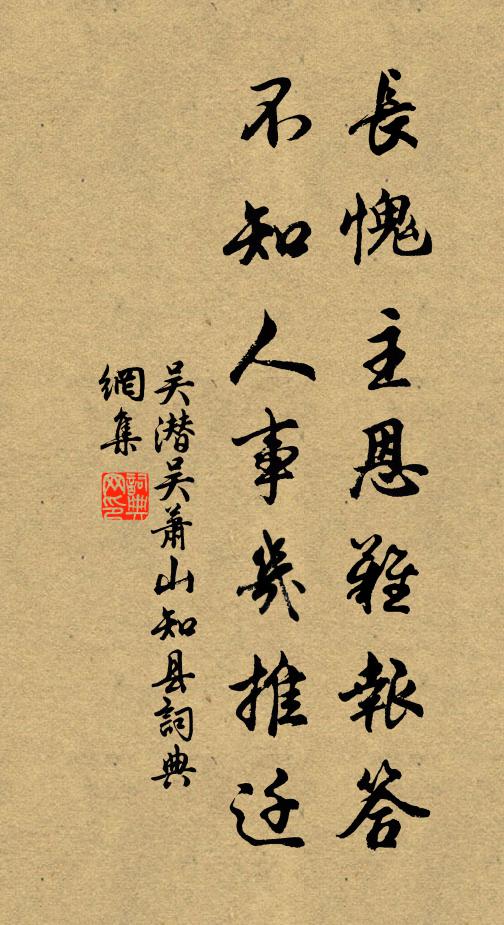 長愧主恩難報答
不知人事幾推迁
吴潜吴蕭山知县詞典
網集
詞典
网印